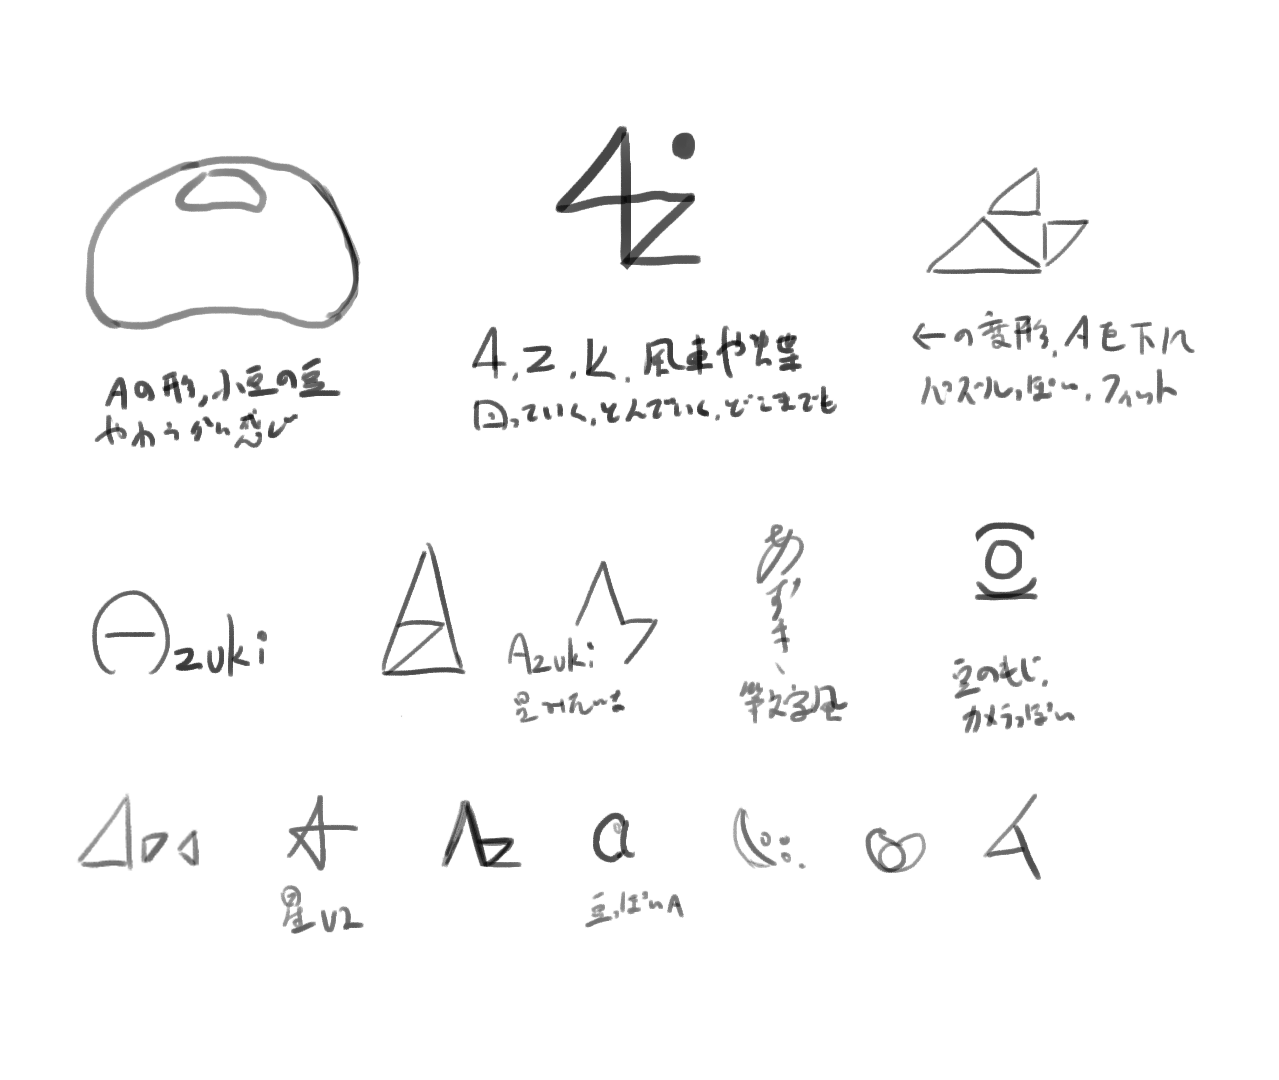 Aの形,小豆の豆
やわらかい感じ
4,z,k,風車や葉
回っていく,とんでいく,どこまでも
←の変形,Aを下に
パズルっぽい,フィット
Azuki
Azuki
星みたいな
あずき
筆文字風
豆のもじ,
カメラっぽい
星v2
a
豆っぽいA